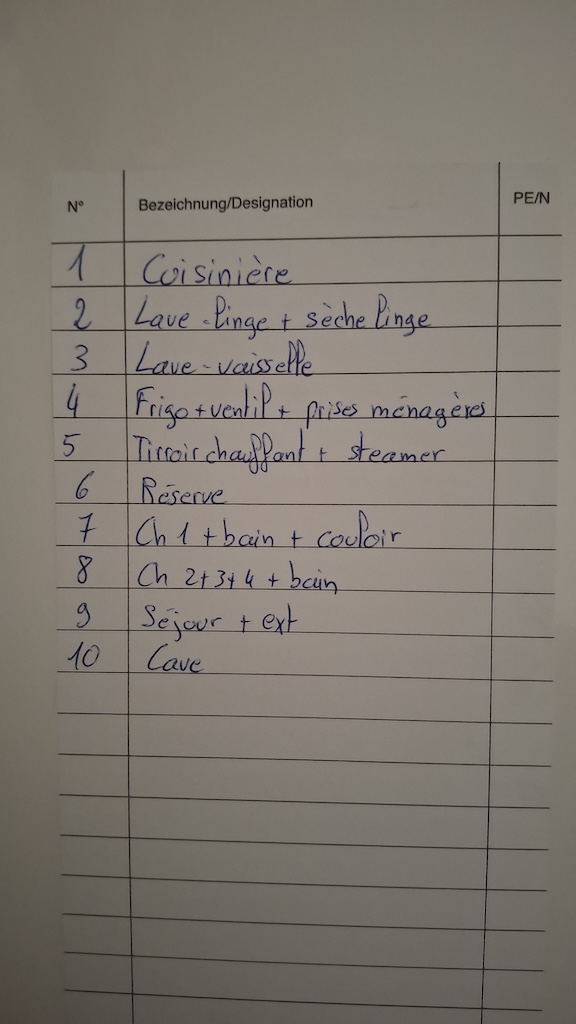 N° Bezeichnung/Designation PE/N
1 Cuisinière
2 Lave-linge + sèche linge
3 Lave-vaisselle
4 Frigo + ventil + prises ménagères
5 Tirroir chauffant + steamer
6 Réserve
7 Ch 1 + bain + couloir
8 Ch 2+3+4 + bain
9 Séjour + ext
10 Cave